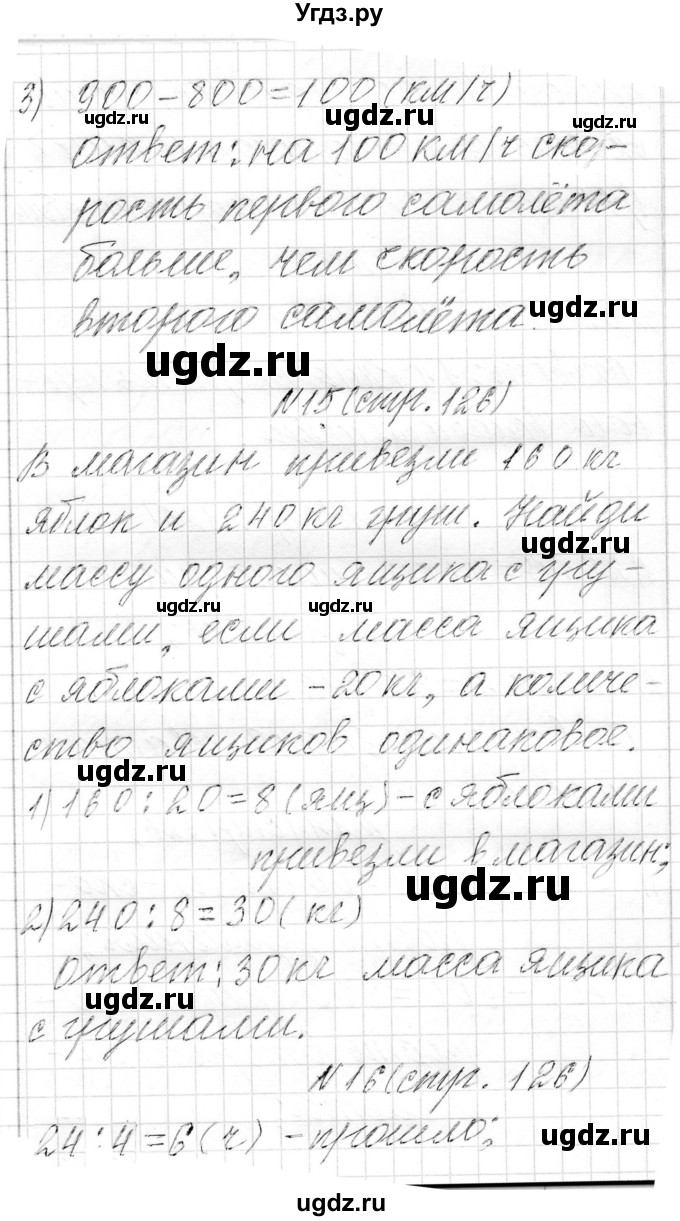 Угдз.ру
3) 900-800=100(км/ч)
ответ: на 100 км/ч ско-
рость первого самолёта
больше, чем скорость
второго самолёта.
№15(стр. 126)
В магазин привезли 160 кг
яблок и 240 кг груш. Найди
массу одного ящика с гру-
шами, если масса ящика
с яблоками -20кг, а количе-
ство ящиков одинаковое.
1) 160:20=8(ящ)-с яблоками
привезли в магазин;
2) 240:8=30(кг)
ответ: 30 кг масса ящика
с грушами.
№16(стр. 126)
24:4=6(ч) -прошло;
ugdz.ru
ugdz.ru
ugdz.ru
ugdz.ru
ugdz.ru
ugdz.ru
ugdz.ru
ugdz.ru
ugdz.ru
ugdz.ru
ugdz.ru
ugdz.ru
ugdz.ru